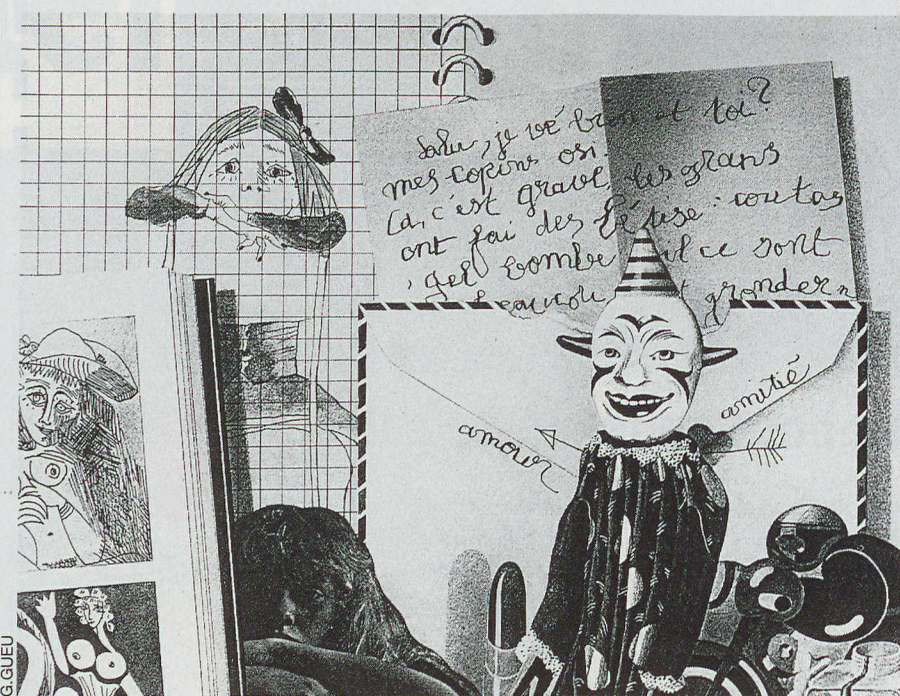 Salu, je vé bien et toi?
mes copins osi.
La, c'est grave, les grans
ont fai des bétise: coutas
gel bombe il ce sont
beaucou gronder
amour
amitié
G.GUEU